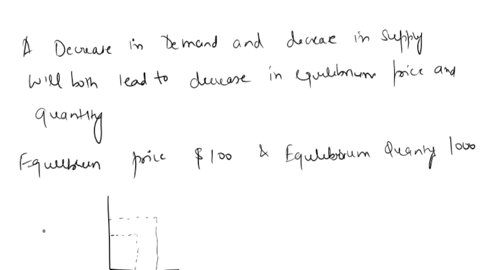 A Decrease in Demand and decrae in supply
will both lead to decrease in equilibrium price and
quantity
Equilibrium price $100 & Equilibrium Quanty 1000